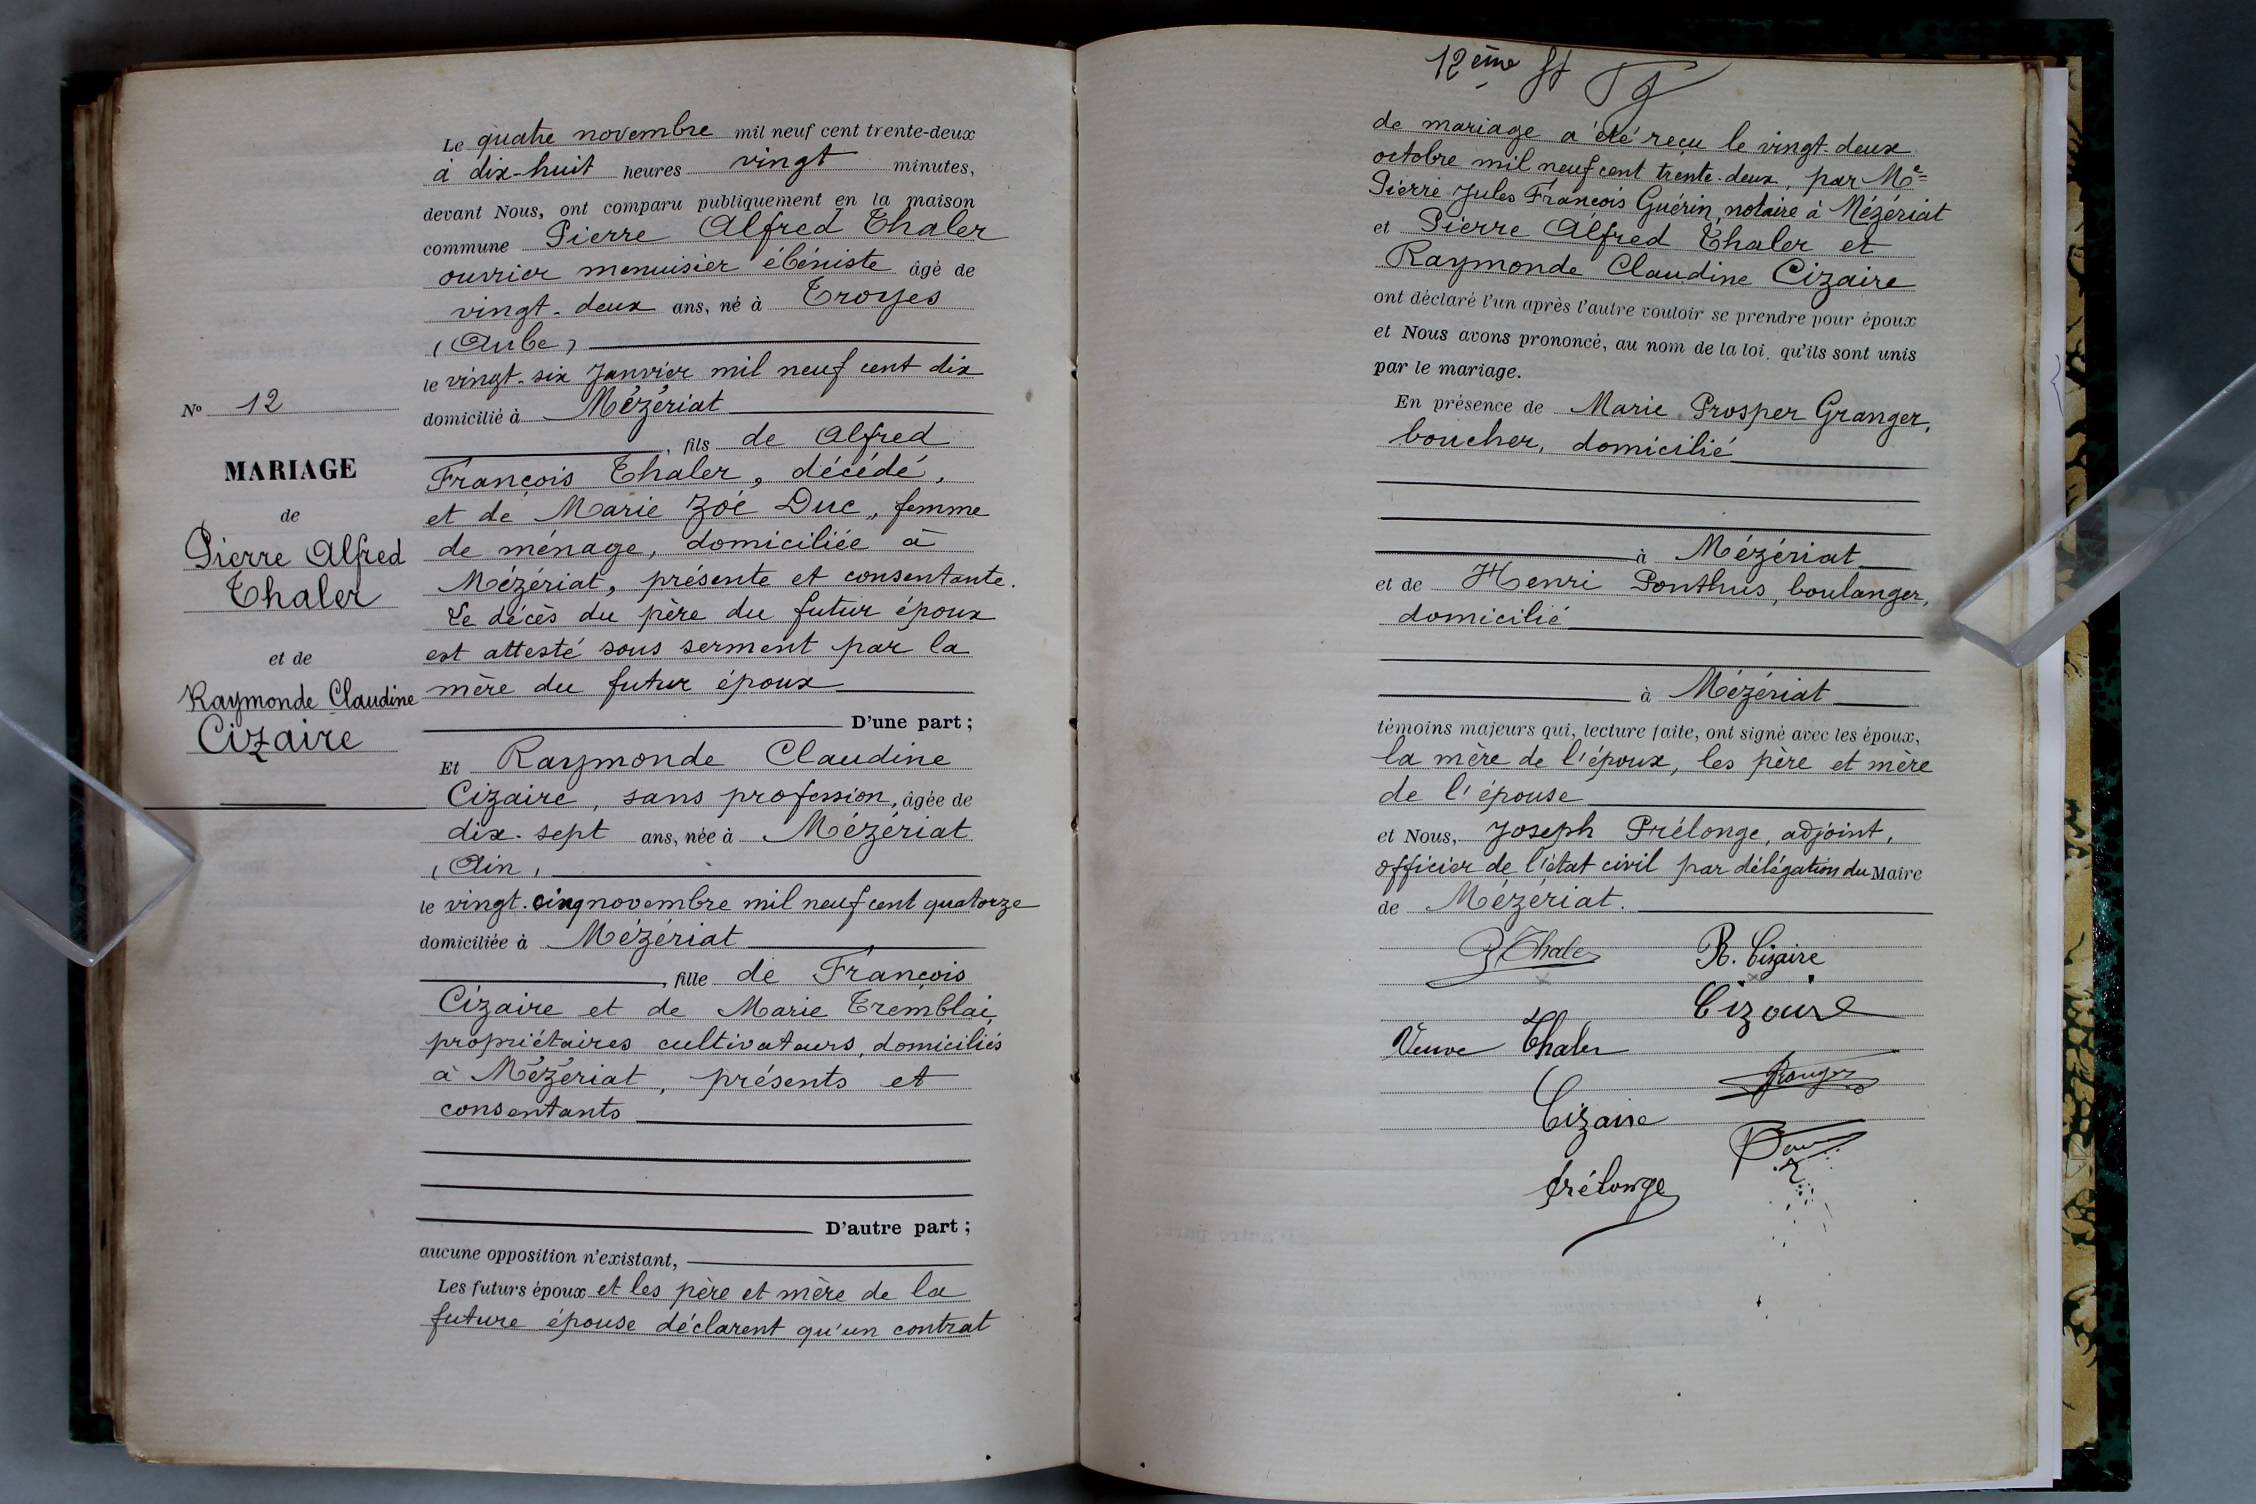 Le quatre novembre mil neuf cent trente-deux
à dix-huit heures vingt minutes,
devant Nous, ont comparu publiquement en la maison
commune Pierre Alfred Thaler
ouvrier menuisier ébéniste âgé de
vingt-deux ans, né à Troyes
(Aube)
le vingt-six Janvier mil neuf cent dix
domicilié à Mézériat
, fils de Alfred
François Thaler, décédé,
et de Marie Zoé Duc, femme
de ménage, domiciliée à
Mézériat, présente et consentante.
Le décès du père du futur époux
est attesté sous serment par la
mère du futur époux
D'une part ;
Et Raymonde Claudine
Cizaire, sans profession, âgée de
dix-sept ans, née à Mézériat
(Ain)
le vingt-cinq novembre mil neuf cent quatorze
domiciliée à Mézériat
, fille de François
Cizaire et de Marie Tremblai,
propriétaires cultivateurs, domiciliés
à Mézériat, présents et
consentants
D'autre part ;
aucune opposition n'existant,
Les futurs époux et les père et mère de la
future épouse déclarent qu'un contrat
No 12
MARIAGE
de
Pierre Alfred
Thaler
et de
Raymonde Claudine
Cizaire
12ème
de mariage a été reçu le vingt-deux
octobre mil neuf cent trente-deux, par Me
Pierre Jules François Guérin, notaire à Mézériat
et Pierre Alfred Thaler et
Raymonde Claudine Cizaire
ont déclaré l'un après l'autre vouloir se prendre pour époux
et Nous avons prononcé, au nom de la loi, qu'ils sont unis
par le mariage.
En présence de Marie Prosper Granger,
boucher, domicilié
à Mézériat
et de Henri Ponthus, boulanger,
domicilié
à Mézériat
témoins majeurs qui, lecture faite, ont signé avec les époux,
la mère de l'époux, les père et mère
de l'épouse
et Nous, Joseph Prélonge, adjoint,
officier de l'état civil par délégation du Maire
de Mézériat.
P. Thaler R. Cizaire
Cizaire
Veuve Thaler
Granger
Cizaire
Prélonge